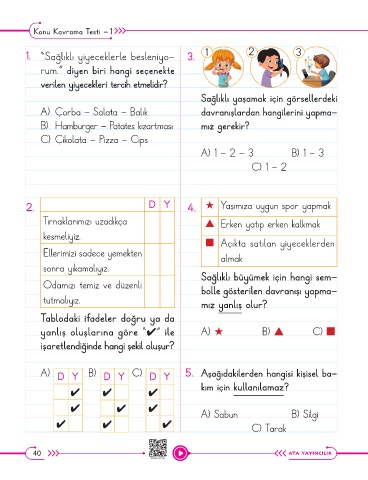 Konu Kavrama Testi - 1
1. "Sağlıklı yiyeceklerle besleniyo-
rum." diyen biri hangi seçenekte
verilen yiyecekleri tercih etmelidir?
A) Çorba - Salata - Balık
B) Hamburger - Patates kızartması
C) Çikolata - Pizza - Cips
2. D Y
Tırnaklarımızı uzadıkça
kesmeliyiz.
Ellerimizi sadece yemekten
sonra yıkamalıyız.
Odamızı temiz ve düzenli
tutmalıyız.
Tablodaki ifadeler doğru ya da
yanlış oluşlarına göre "✔" ile
işaretlendiğinde hangi şekil oluşur?
A) D Y B) D Y C) D Y
✔ ✔ ✔
✔ ✔ ✔
✔ ✔ ✔
3. 1 2 3
Sağlıklı yaşamak için görsellerdeki
davranışlardan hangilerini yapma-
mız gerekir?
A) 1 - 2 - 3 B) 1 - 3
C) 1 - 2
4. ★ Yaşımıza uygun spor yapmak
▲ Erken yatıp erken kalkmak
■ Açıkta satılan yiyeceklerden
almak
Sağlıklı büyümek için hangi sem-
bolle gösterilen davranışı yapma-
mız yanlış olur?
A) ★ B) ▲ C) ■
5. Aşağıdakilerden hangisi kişisel ba-
kım için kullanılamaz?
A) Sabun B) Silgi
C) Tarak
40
ATA YAYINCILIK